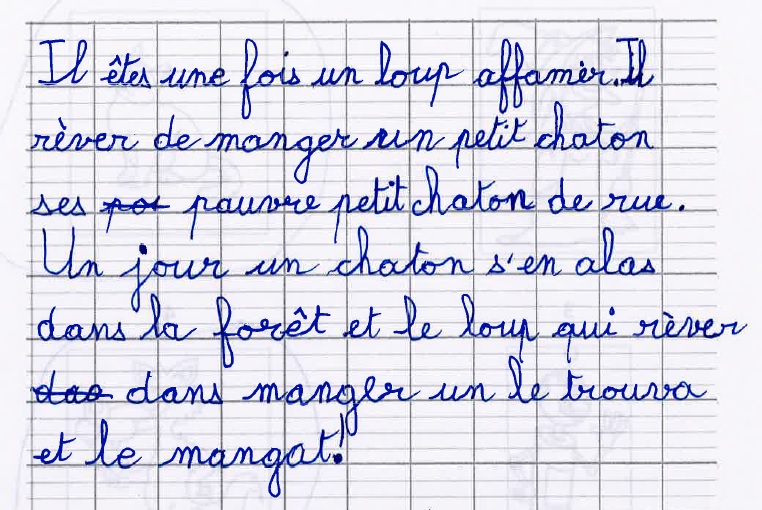 Il êtes une fois un loup affamèr. Il
rèver de manger un petit chaton
ses poi pauvre petit chaton de rue.
Un jour un chaton s'en alas
dans la forêt et le loup qui rèver
dao dans manger un le trouva
et le mangat!